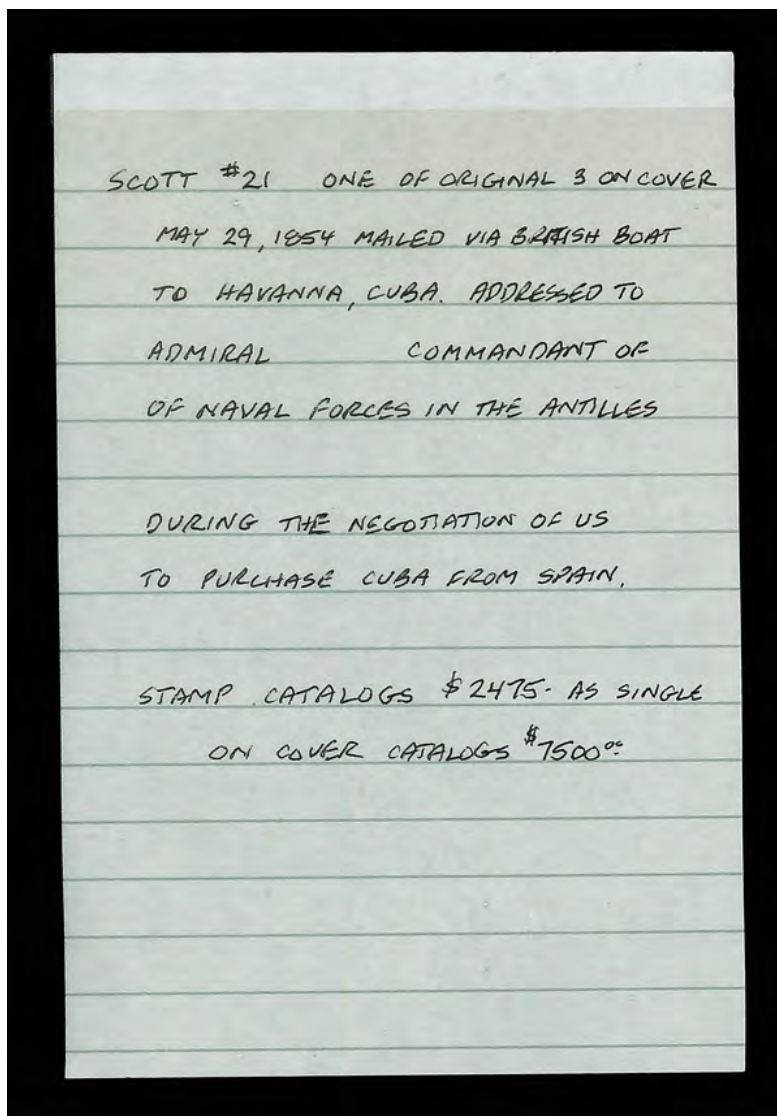 SCOTT #21 ONE OF ORIGINAL 3 ON COVER
MAY 29, 1854 MAILED VIA BRITISH BOAT
TO HAVANNA, CUBA. ADDRESSED TO
ADMIRAL COMMANDANT OF
OF NAVAL FORCES IN THE ANTILLES
DURING THE NEGOTIATION OF US
TO PURCHASE CUBA FROM SPAIN.
STAMP CATALOGS $2475- AS SINGLE
ON COVER CATALOGS $7500.00